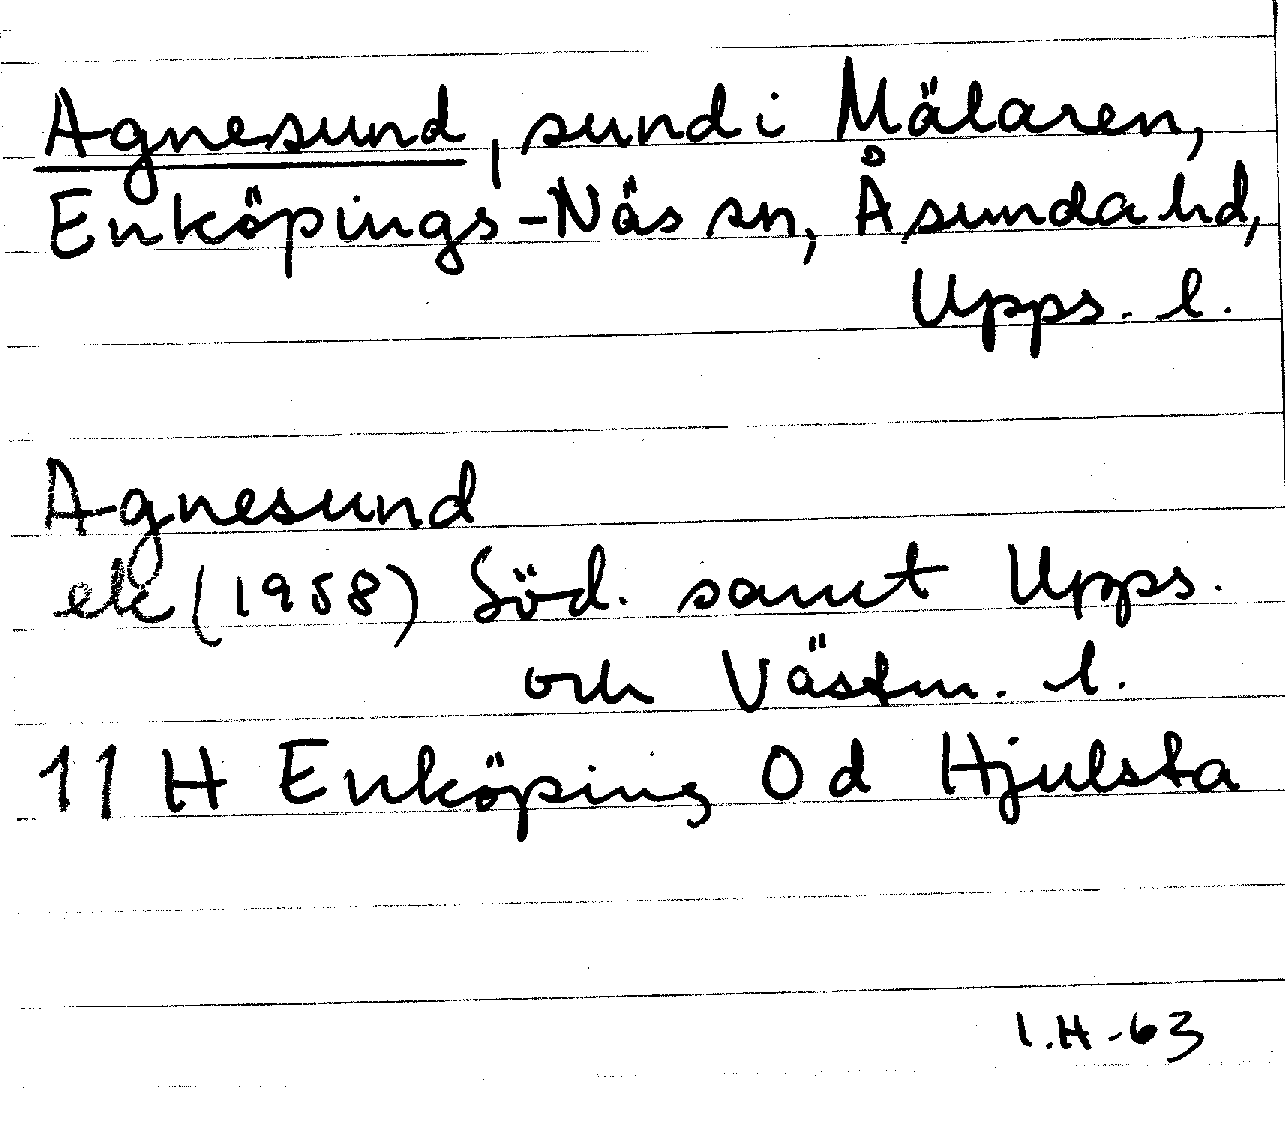 Agnesund, sund i Mälaren,
Enköpings-Näs sn, Åsunda hd,
Upps. l.
Agnesund
ek (1958) Söd. samt Upps.
och Västm. l.
11 H Enköping 0d Hjulsta
I.H-63